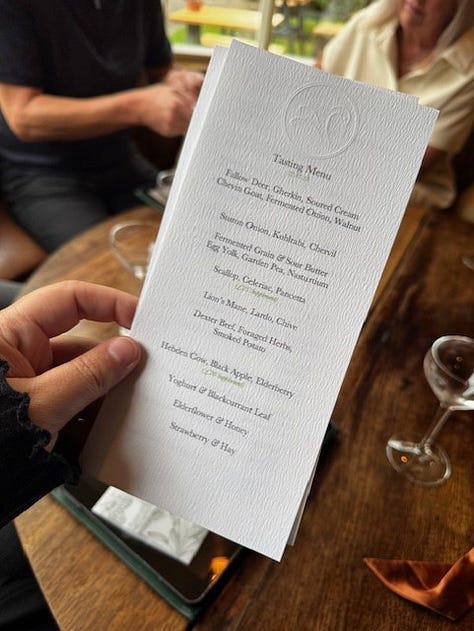 Tasting Menu
Fallow Deer, Gherkin, Soured Cream
Chevin Goat, Fermented Onion, Walnut
Onion, Kohlrabi, Chervil
Fermented Grain & Sour Butter
Egg Yolk, Garden Pea, Nasturtium
Scallop, Celeriac, Pancetta
Lion's Mane, Lardo, Chive
Dexter Beef, Foraged Herbs,
Smoked Potato
Hebden Cow, Black Apple, Elderberry
Yoghurt & Blackcurrant Leaf
Elderflower & Honey
Strawberry & Hay